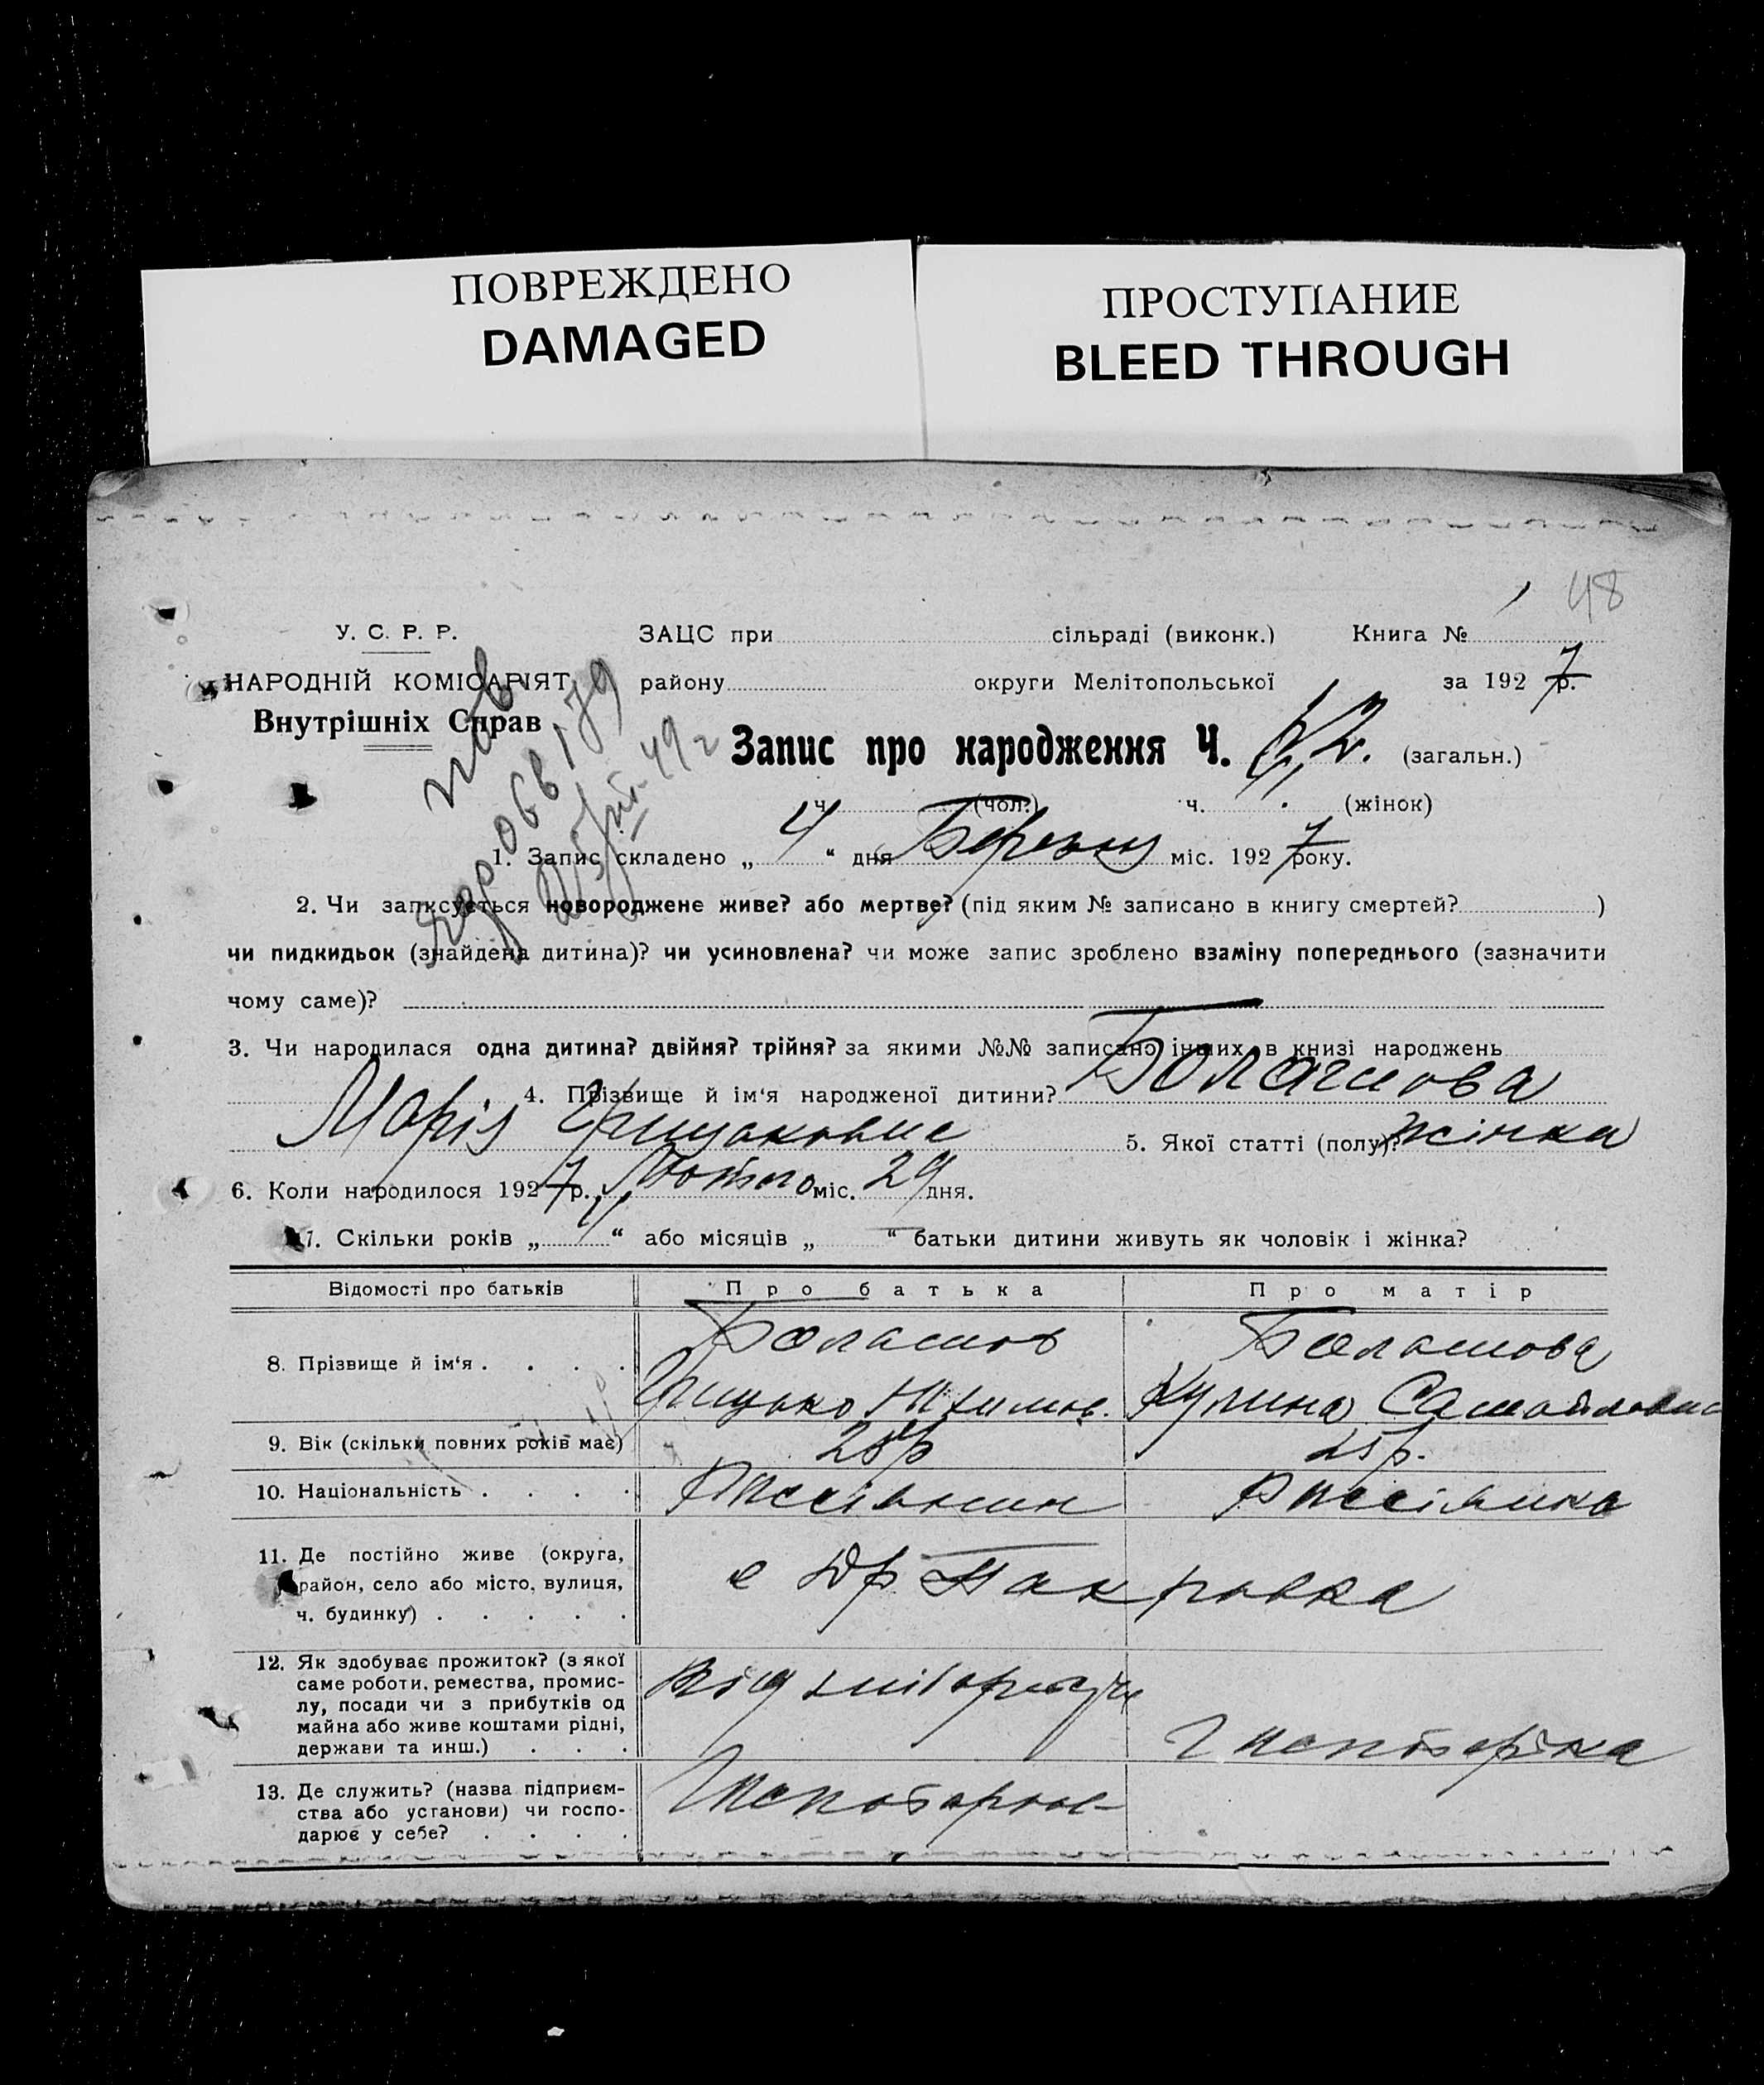 ПОВРЕЖДЕНО
DAMAGED
ПРОСТУПАНИЕ
BLEED THROUGH
48
У. С. Р. Р.
НАРОДНІЙ КОМІСАРІЯТ
Внутрішніх Справ
ЗАЦС при сільраді (виконк.) Книга №
району округи Мелітопольської за 1927 р.
Запис про народження Ч. (загальн.)
ч. (чол.) ч. (жінок)
1. Запис складено „ 4 “ дня Березня міс. 1927 року.
2. Чи записується новороджене живе? або мертве? (під яким № записано в книгу смертей? )
чи пидкидьок (знайдена дитина)? чи усиновлена? чи може запис зроблено взаміну попереднього (зазначити
чому саме)?
3. Чи народилася одна дитина? двійня? трійня? за якими №№ записано інших в книзі народжень
4. Прізвище й ім‘я народженої дитини? Болашова
Марія 5. Якої статті (полу)? жінка
6. Коли народилося 1927 р. Лютого міс. 29 дня.
7. Скільки років „ “ або місяців „ “ батьки дитини живуть як чоловік і жінка?
Відомості про батьків Про батька Про матір
8. Прізвище й ім‘я . . . . Болашов Болашова
Грицько Кулина Самойловна
9. Вік (скільки повних років має) 25р.
10. Національність . . . .
11. Де постійно живе (округа,
район, село або місто, вулиця,
ч. будинку) . . . . .
Покровка
12. Як здобуває прожиток? (з якої
саме роботи, ремества, промис-
лу, посади чи з прибутків од
майна або живе коштами рідні,
держави та инш.) . . .
Від
13. Де служить? (назва підприєм-
ства або установи) чи госпо-
дарює у себе? . . . .